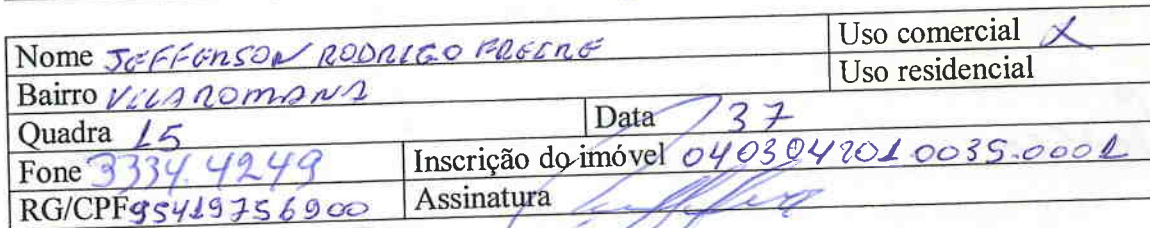 Nome JEFFERSON RODRIGO FREIRE Uso comercial X
Bairro VILA ROMANA Uso residencial
Quadra 15 Data 37
Fone 3334.4249 Inscrição do imóvel 040304201.0035.0001
RG/CPF 95419756900 Assinatura